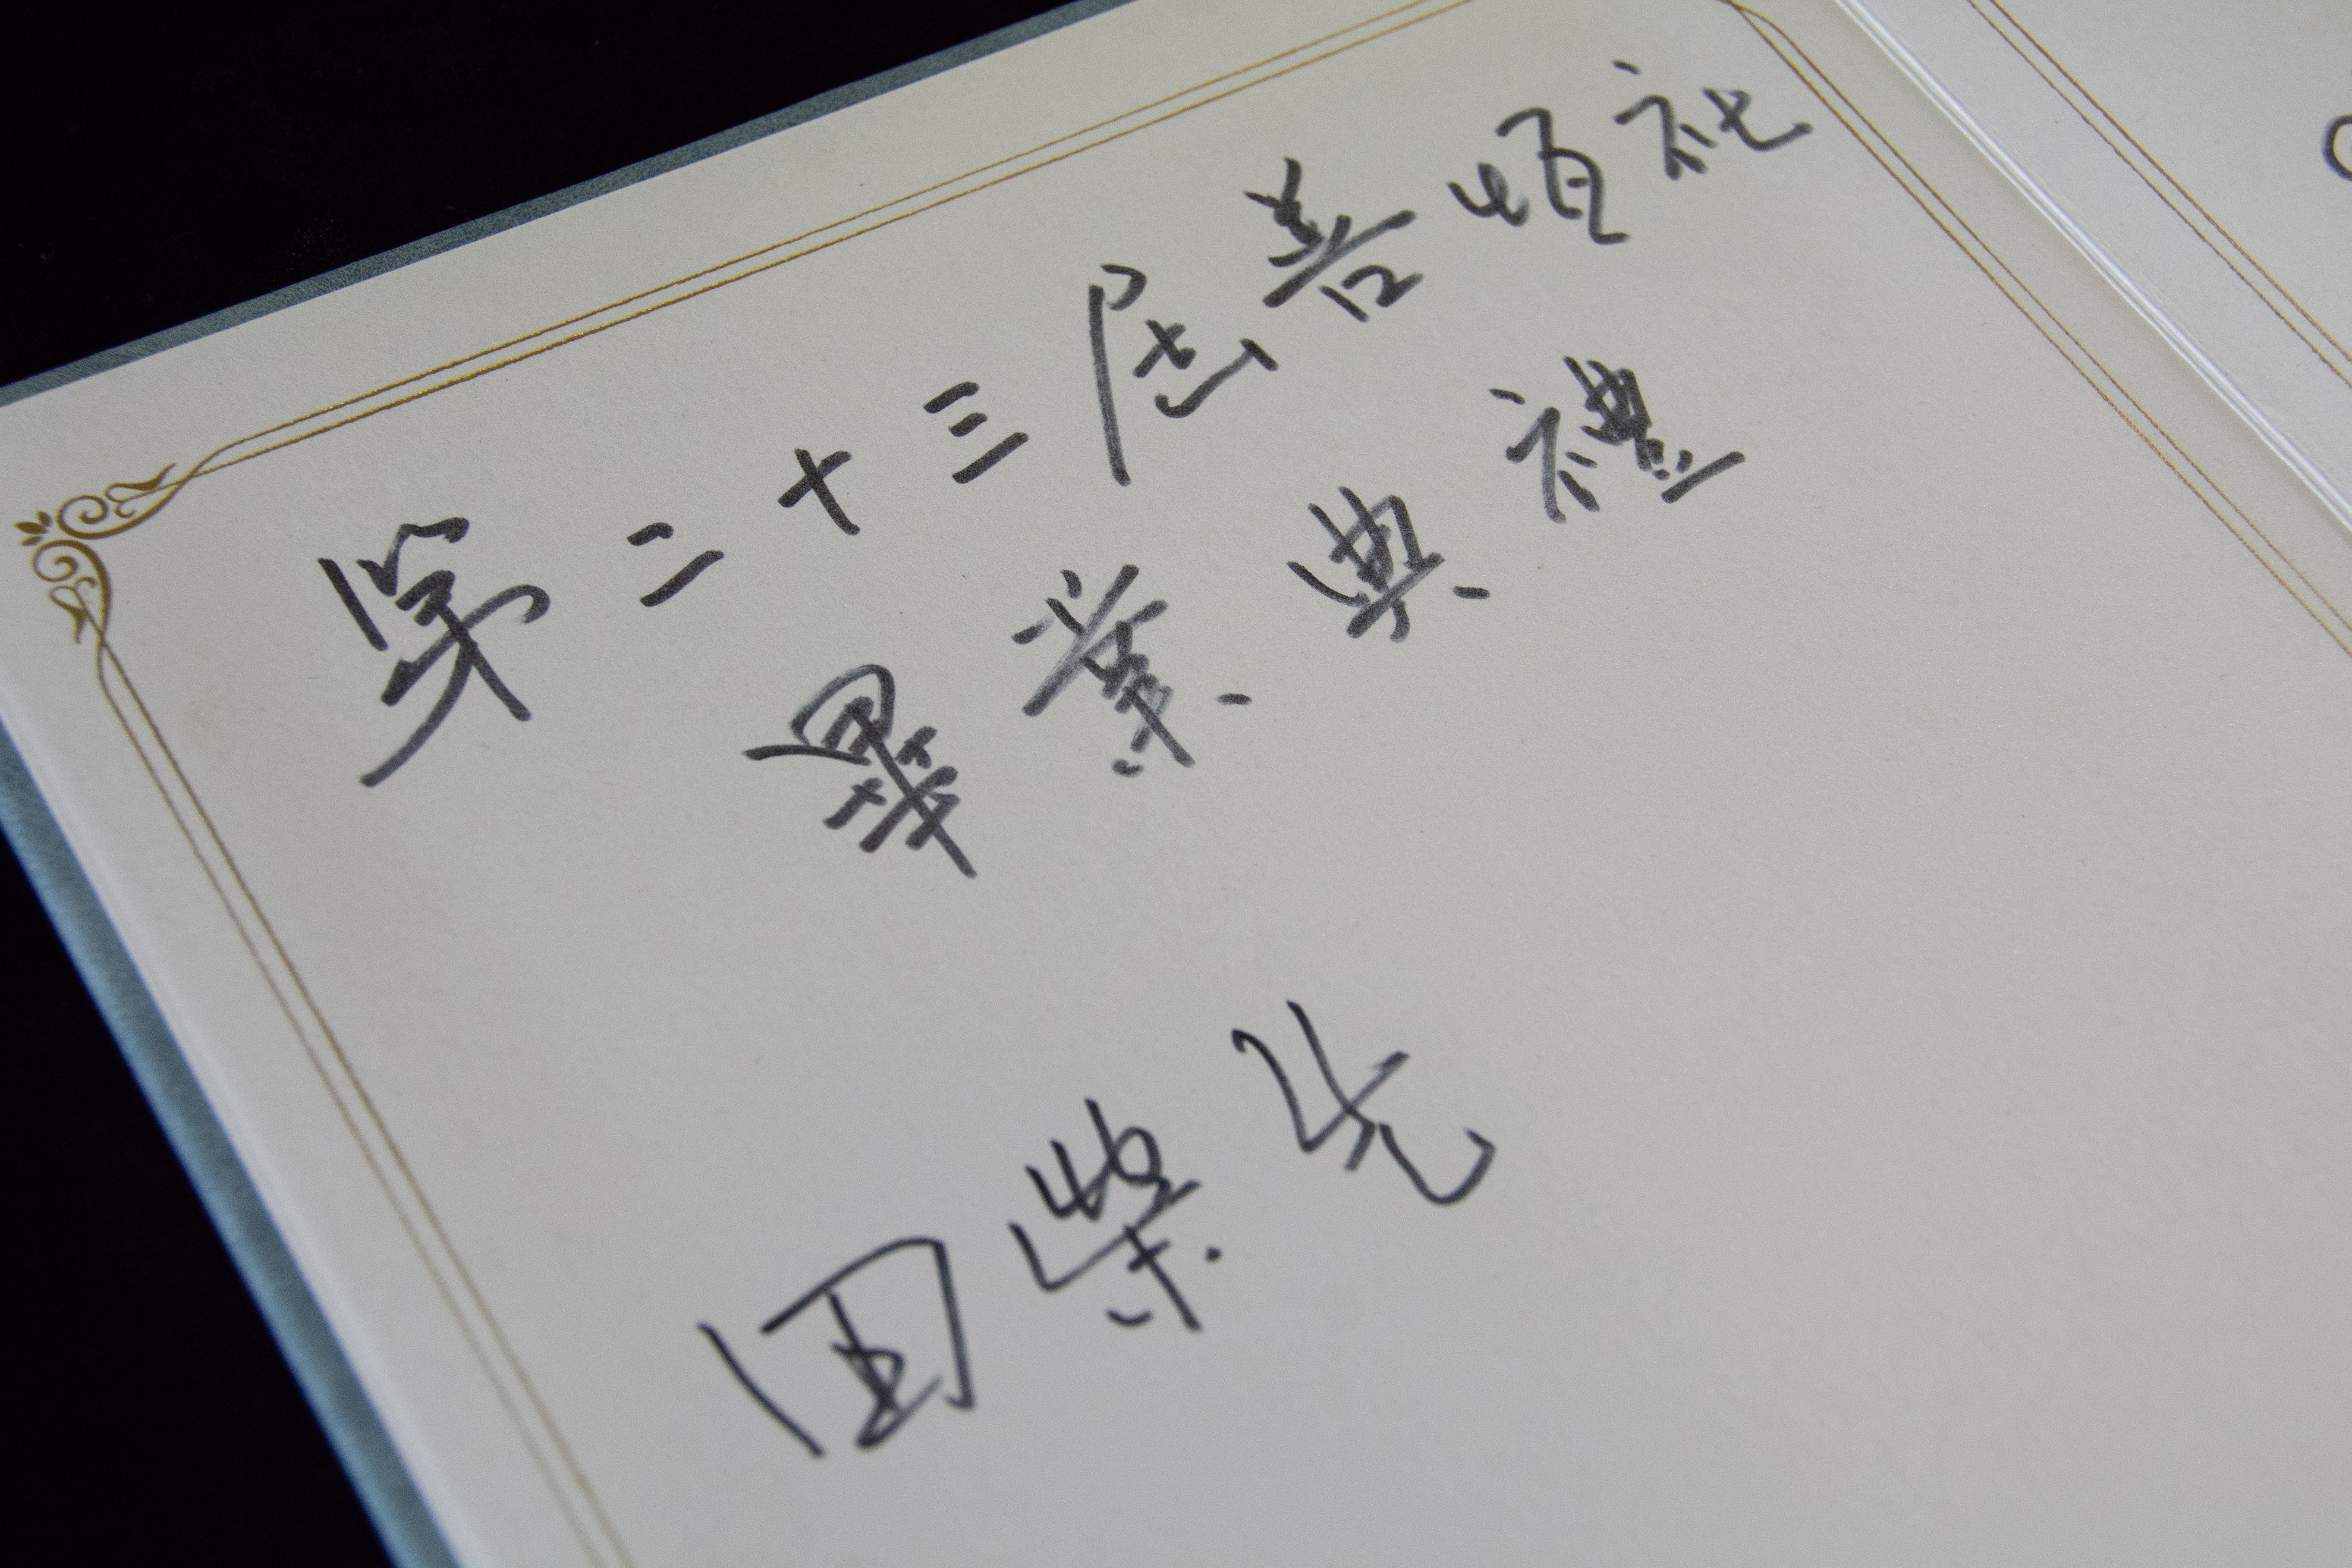 第二十三屆善恆社
畢業典禮
田榮先